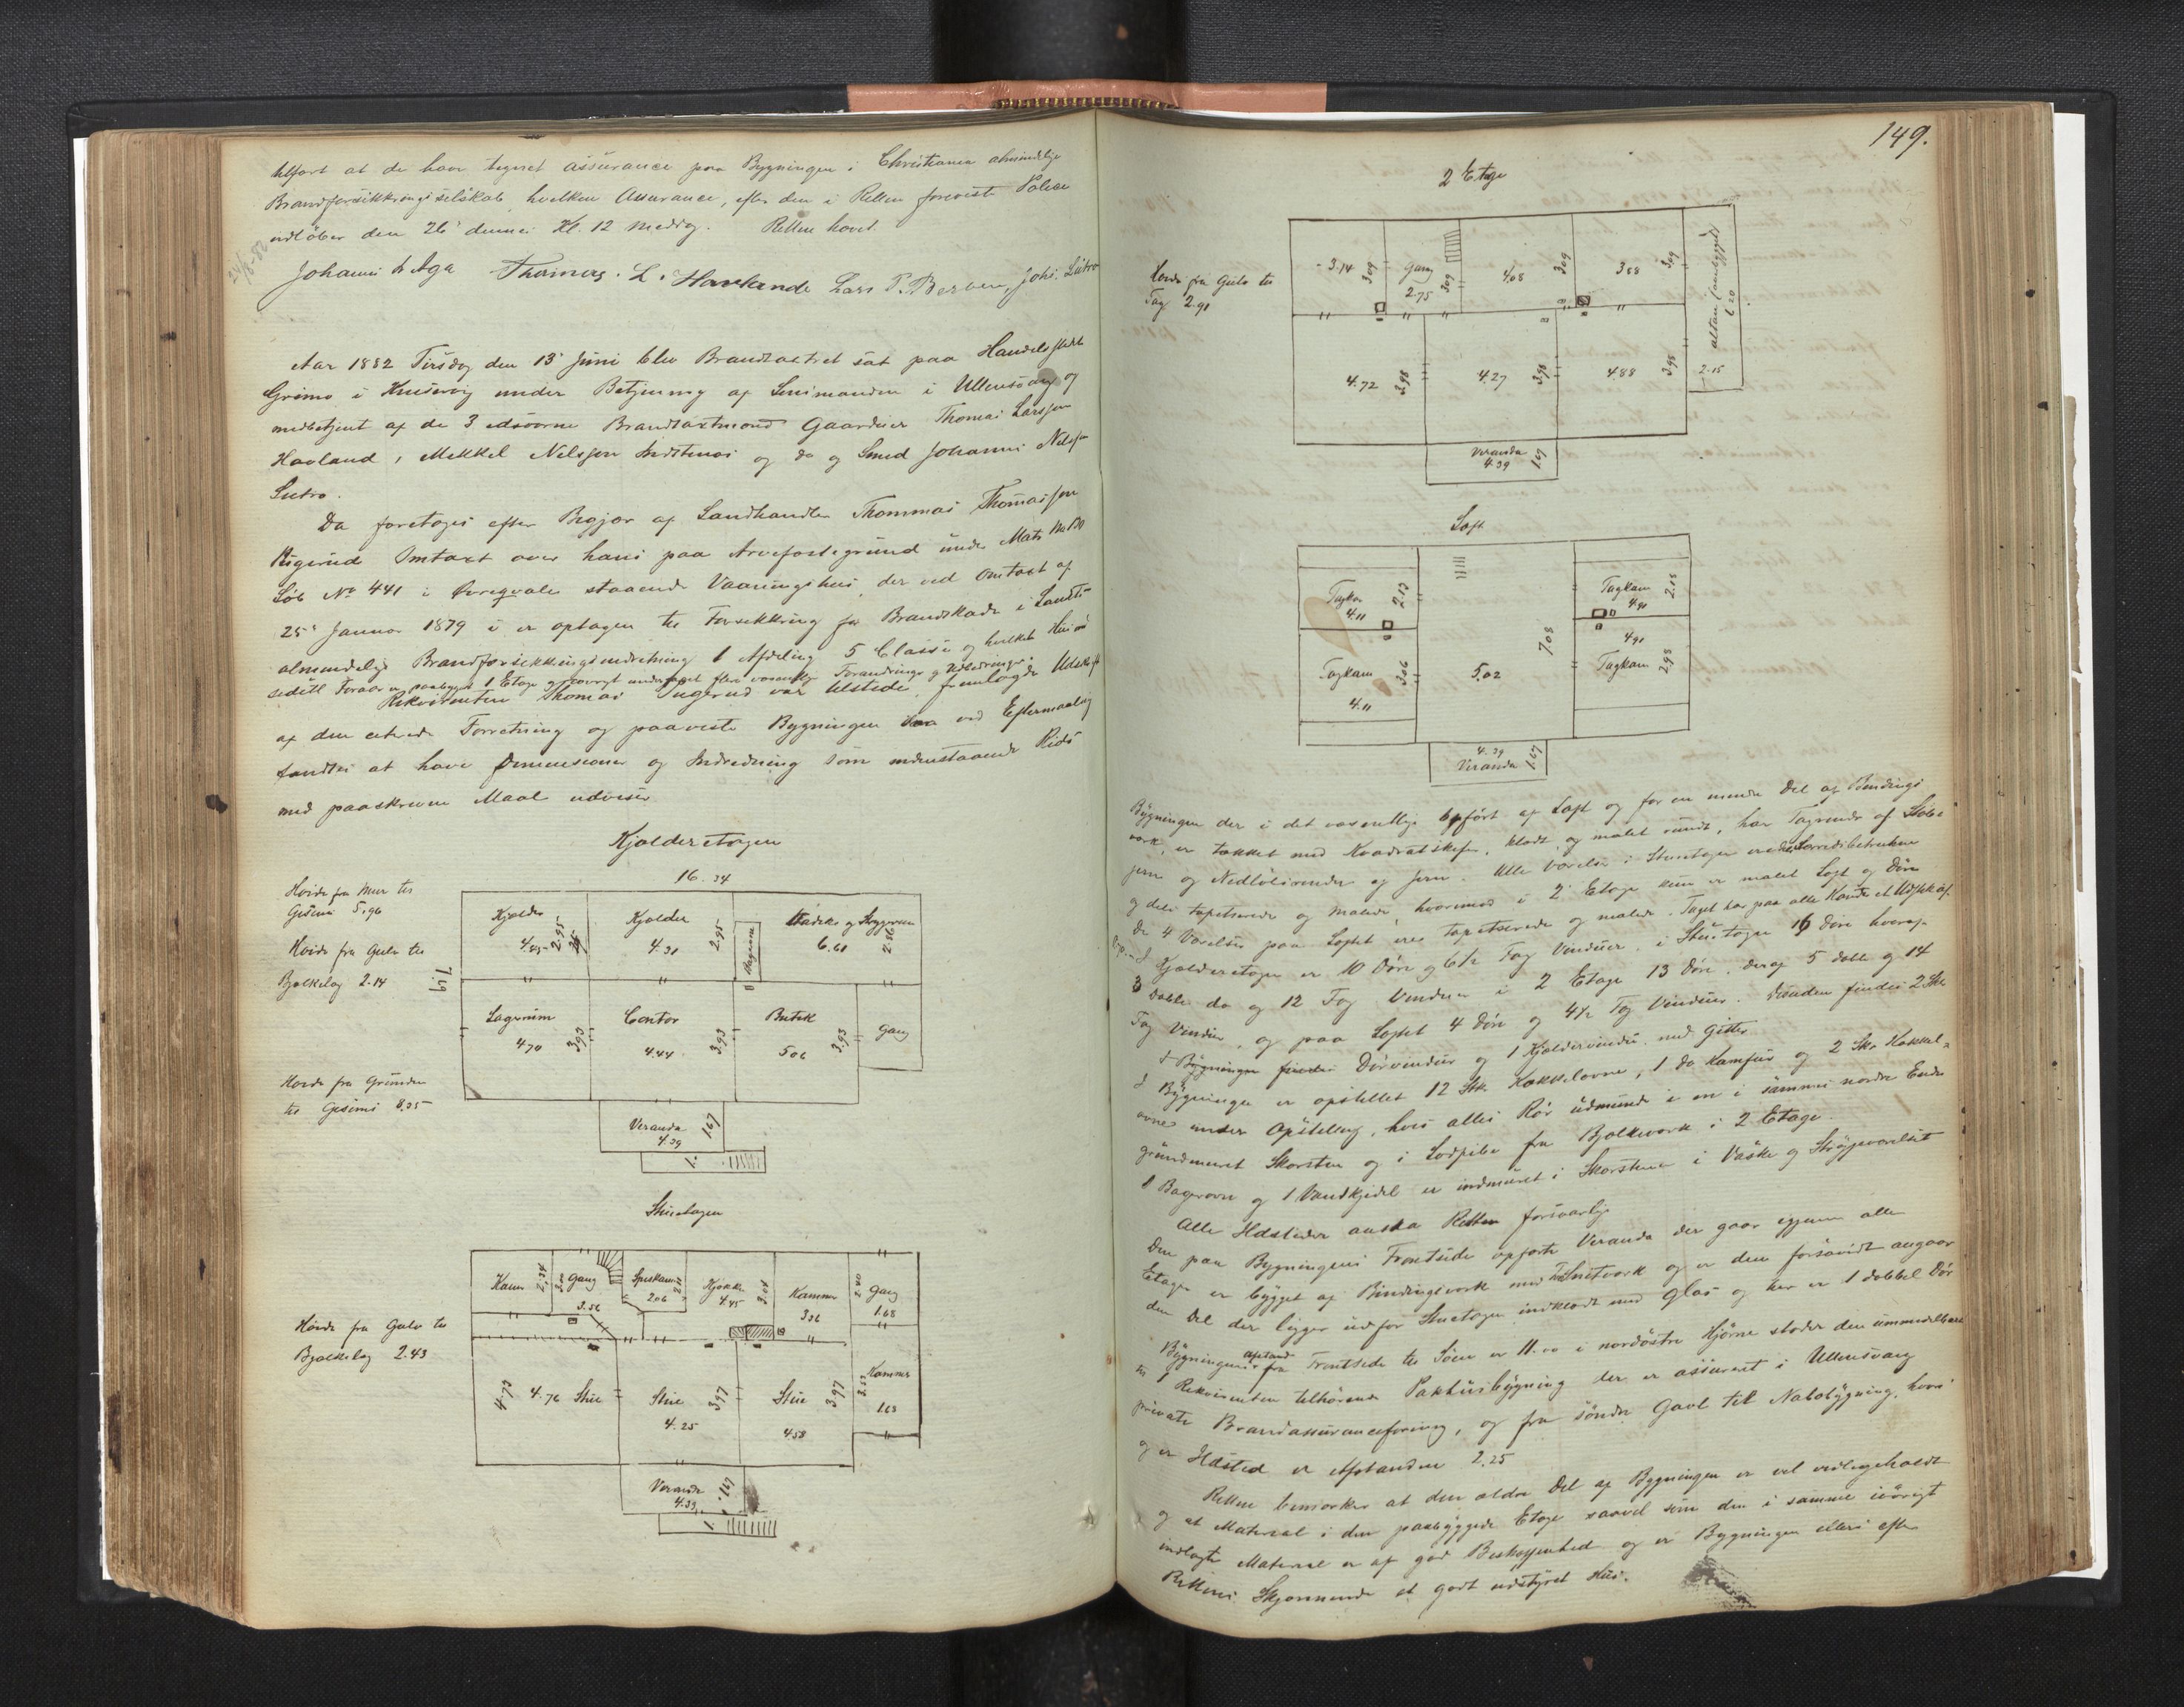 tilført at de have tegnet assurance paa Bygningen i Christiania almindelige
Brandforsikkringsselskab, hvilken Assurance, efter den i Retten foreviste Police
indløber den 26' dennes Kl. 12 Middag. Retten hævet.
24/6-82
Johannes Aga Thomas. L. Havlande Lars T. Johs. Lutro
Aar 1882 Tirsdag den 13' Juni blev Brandtaxtret sat paa Handelsstedet
Grimo i Kinservig under Betjening af Lensmanden i Ullensvang og
medbetjent af de 3 edsvorne Brandtaxtmænd Gaardbr Thomas Larssen
Havland, Mikkel Nelssen og do og Smed Johannes Nelssen
Lutro.
Da foretoges efter Begjær af Landhandler Thommas Thomassen
Omtaxt over hans paa Arvefæstegrund under Matr No
Løb No 441 i staaende Vaaningshus, der ved Omtaxt af
25' Januar 1879 er optagen til Forsikkring for Brandskade i Landets
almindelige Brandforsikkringsindretning 1 Afdeling 5 Classe og hvilket Huus
sidstl. Foraar er paabygget 1 Etage og iøvrigt undergaaet flere væsentlige Forandringer og Udbedringer.
Rekvirenten Thomas var tilstede, fremlagde Udskrift
af den citerede Forretning og paaviste Bygningen der ved Eftermaaling
fandtes at have Dimensioner og Indredning som nedenstaaende Rids
med paaskrevne Maal udviser
Kjælderetagen
16.34
Høide fra Mur til
Gesims 5.96
Høide fra Gulv til
Bjælkelag 2.14
Høide fra Grunden
til Gesims 8.25
7.19
Kjelder
4.45
2.95
Kjælder
4.31
2.95
Bagerovn
Vadske og Strygerum
6.61
2.86
Lagerrum
4.70
3.93
Contor
4.44
3.93
Butik
5.06
3.93
Gang
Veranda
4.39
1.67
Stueetagen
Høide fra Gulv til
Bjælkelag 2.43
Kamr
2.34
Gang
3.56
Speskamr
2.06
2.11
Kjøkken
4.45
3.04
Kammer
3.36
2.40
Gang
1.68
4.73
4.76 Stue
Stue
4.25
3.97
Stue
4.58
3.97
Kammer
1.63
Veranda
4.39
1.67
149.
2 Etage
Høide fra Gulv til
Tag 2.91
3.14
3.09
Gang
2.75
3.09
4.08
3.09
3.88
3.09
altan
6.20
4.72
3.98
4.27
3.98
4.88
3.98
2.15
Veranda
4.39
1.67
Loft
4.11
2.13
Tagkam
4.90
2.18
Tagkam
4.11
3.06
5.02
7.08
4.91
Tagkam
2.93
4.39
Veranda
1.67
Bygningen der i det væsentlige opført af Laft og for en mindre Del af Bindings
værk, er tækket med Kvadratskifer, klædt og malet rundt, har Tagrender af Støbe
jern og Nedløbsrender af Jern. Alle Værelser i Stueetagen ere dels lærredsbetrukne
og dels tapetserede og malede, hvorimod i 2' Etage kun er malet Loft og Døre
De 4 Værelser paa Loftet ere tapetserede og malede. Taget har paa alle Kanter et Udstik af
I Kjælderetagen er 10 Døre og 6½ Fag Vinduer, i Stueetagen 16 Døre hvoraf
3 doble do og 12 Fag Vinduer i 2 Etage 13 Døre, deraf 5 doble og 14
Fag Vinduer, og paa Loftet 4 Døre og 4½ Fag Vinduer. Desuden findes 2 Stk
Dørvinduer og 1 Kjældervindu med Gitter
I Bygningen er opstillet 12 Stk. Kakkelovne, 1 do Komfur og 2 Stk Kakkel=
ovne under Opstilling, hvis alles Rør udmunde i en i sammes nordre Ende
grundmuret Skorsten og i Lodpibe fra Bjælkeværk i 2 Etage.
1 Bagerovn og 1 Vandkjedel er indmuret i Skorstenen i Vaske og Strygeværelset
Alle Ildsteder ansaa Retten forsvarlige
Den paa Bygningens Frontside opførte Veranda der gaar igjennem alle
Etager er bygget af Bindingsværk med Snitværk og er den forsaavidt angaar
den Del der ligger udfor Stueetagen indklædt med Glas og her er 1 dobbel Dør
Bygningens Afstand fra Frontside til Søen er 11.00 i nordøstre Hjørne støder den umiddelbart
til 1 Rekvirenten tilhørende Pakhusbygning der er assureret i Ullensvang
private Brandassuranceforening, og fra søndre Gavl til Nabobygning, hvori
og er Ildsted er Afstanden 2.25
Retten bemærker at den ældre Del af Bygningen er vel vedligeholdt
og at Material i den paabyggede Etage saavel som den i samme iøvrigt
indlagte Material er af god Beskaffenhed og er Bygningen ellers efter
Rettens Skjønnende et godt udstyret Hus.